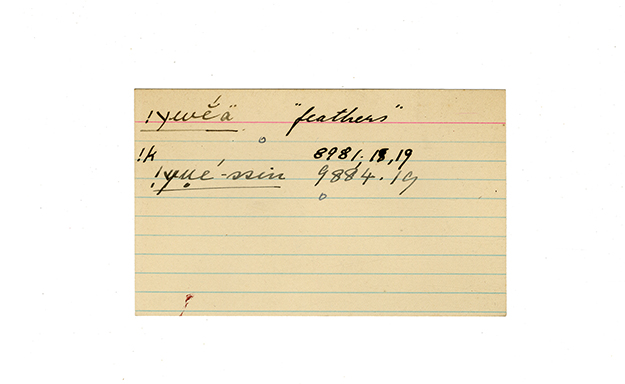 !χwĕ́ä "feathers"
!k 8981, 18, 19
!χu̥é-ssin 9884.19